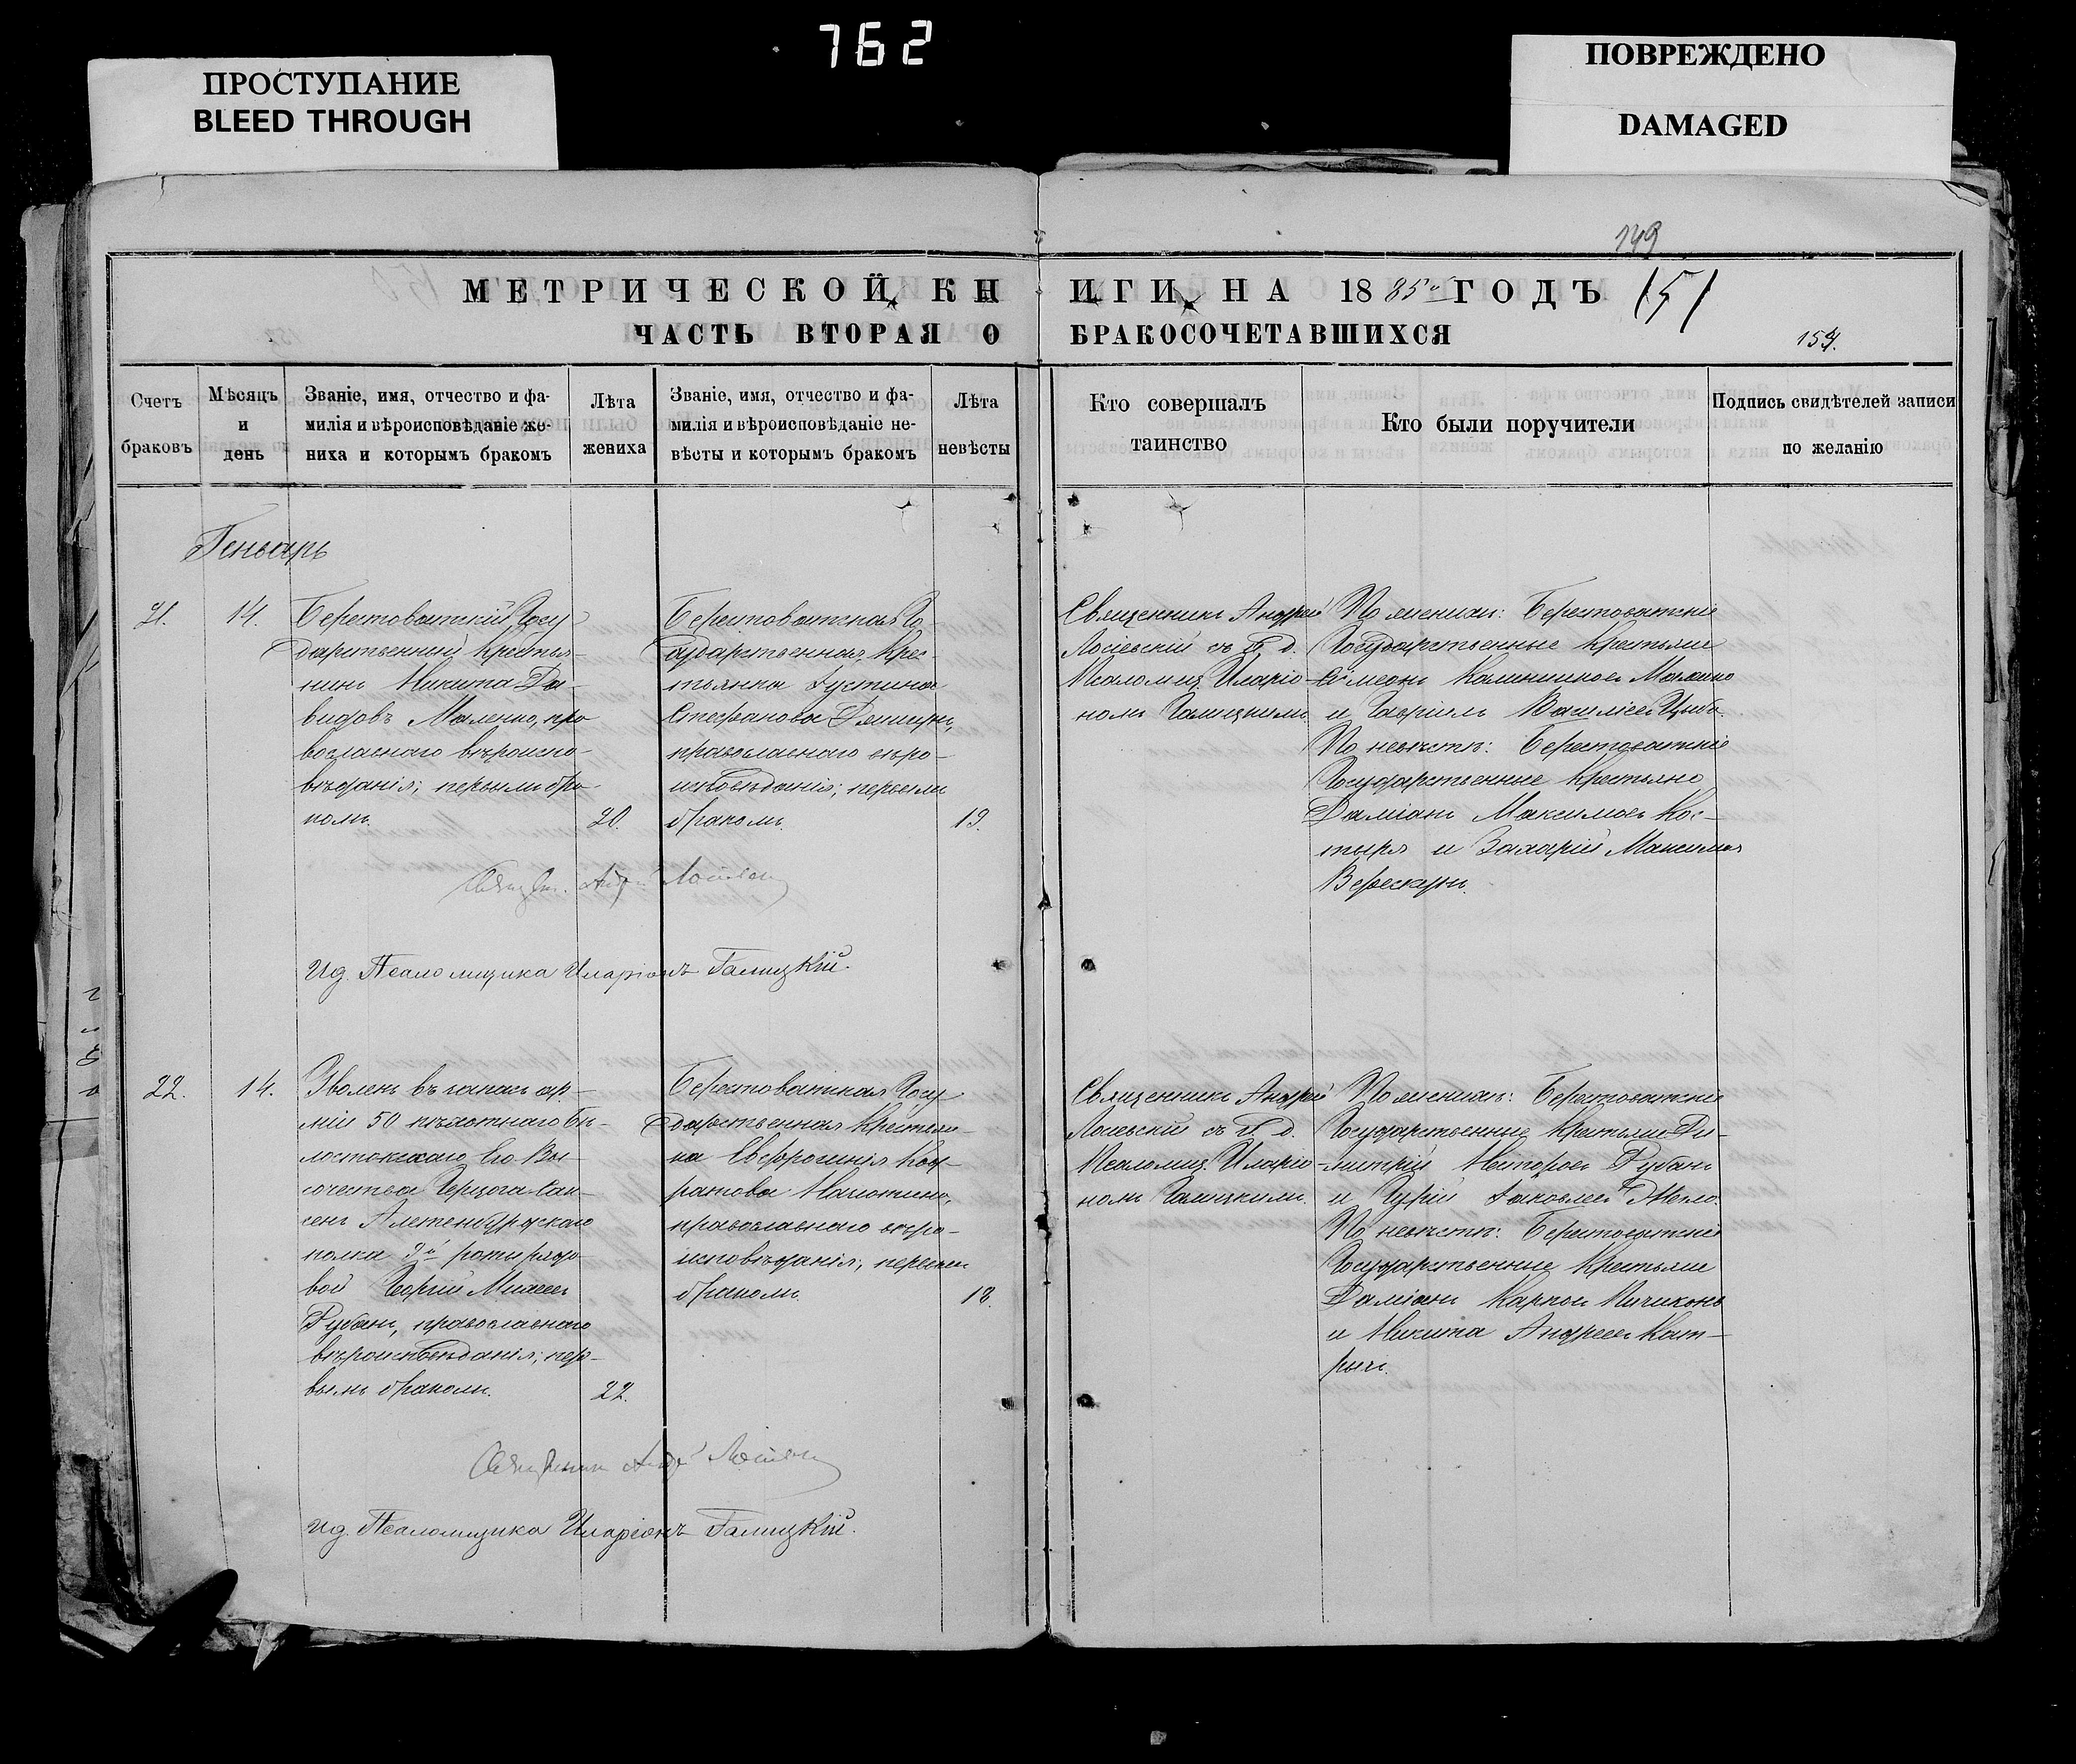 762
ПРОСТУПАНИЕ
BLEED THROUGH
ПОВРЕЖДЕНО
DAMAGED
149
МЕТРИЧЕСКОЙ КНИГИ НА 1885 ГОДЪ
ЧАСТЬ ВТОРАЯ О БРАКОСОЧЕТАВШИХСЯ
Счетъ
браковъ
Мѣсяцъ
и
день
Званіе, имя, отчество и фа-
милія и вѣроисповѣданіе же-
ниха и которымъ бракомъ
Лѣта
жениха
Званіе, имя, отчество и фа-
милія и вѣроисповѣданіе не-
вѣсты и которымъ бракомъ
Лѣта
невѣсты
Кто совершалъ
таинство
Кто были поручители
Подпись свидѣтелей записи
по желанію
Геньварь
21.
14.
Берестоватскій Госу-
дарственный Крестья-
нинъ Никита Да-
видовъ Маленко, пра
вославнаго вѣроиспо-
вѣданія; первымъ бра-
комъ.
20.
Берестоватская Го-
сударственная Крес-
тьянка Іустина
Стефанова
православнаго вѣро-
исповѣданія; первымъ
бракомъ.
19.
Священникъ Андрей
Лосіевскій съ И. д.
Псаломщ. Иларіо-
номъ Галицкимъ.
По женихѣ: Берестоватскіе
Государственные Крестьяне
Симеонъ
и Гавріилъ Василіевъ
По невѣстѣ: Берестоватскіе
Государственные Крестьяне
Даміанъ Максимовъ Кос-
тыря и Захарій Максимовъ
Верескунъ.
Священ. Андрей
Ид. Псаломщика Иларіонъ Галицкій.
22.
14.
Уволенъ въ запасъ ар-
міи 50 пѣхотнаго Бѣ-
лостокскаго Его Вы-
сочества Герцога Сак-
сенъ Альтенбургскаго
полка 9й роты рядо-
вой Георгій
Рубанъ, православнаго
вѣроисповѣданія; пер-
вымъ бракомъ.
22.
Берестоватская Госу-
дарственная Крестьян-
ка Евфросинія Код-
ратова
православнаго вѣро-
исповѣданія; первымъ
бракомъ.
18.
Священникъ Андрей
Лосіевскій съ И. д.
Псаломщ. Иларіо-
номъ Галицкимъ.
По женихѣ: Берестоватскіе
Государственные Крестьяне Ди-
митрій Несторовъ Рубанъ
и Гурій Іаковлевъ
По невѣстѣ: Берестоватскіе
Государственные Крестьяне
Даміанъ Карповъ
и Никита Андреевъ Кат-
ричъ.
Священникъ Андрей
Ид. Псаломщика Иларіонъ Галицкій.